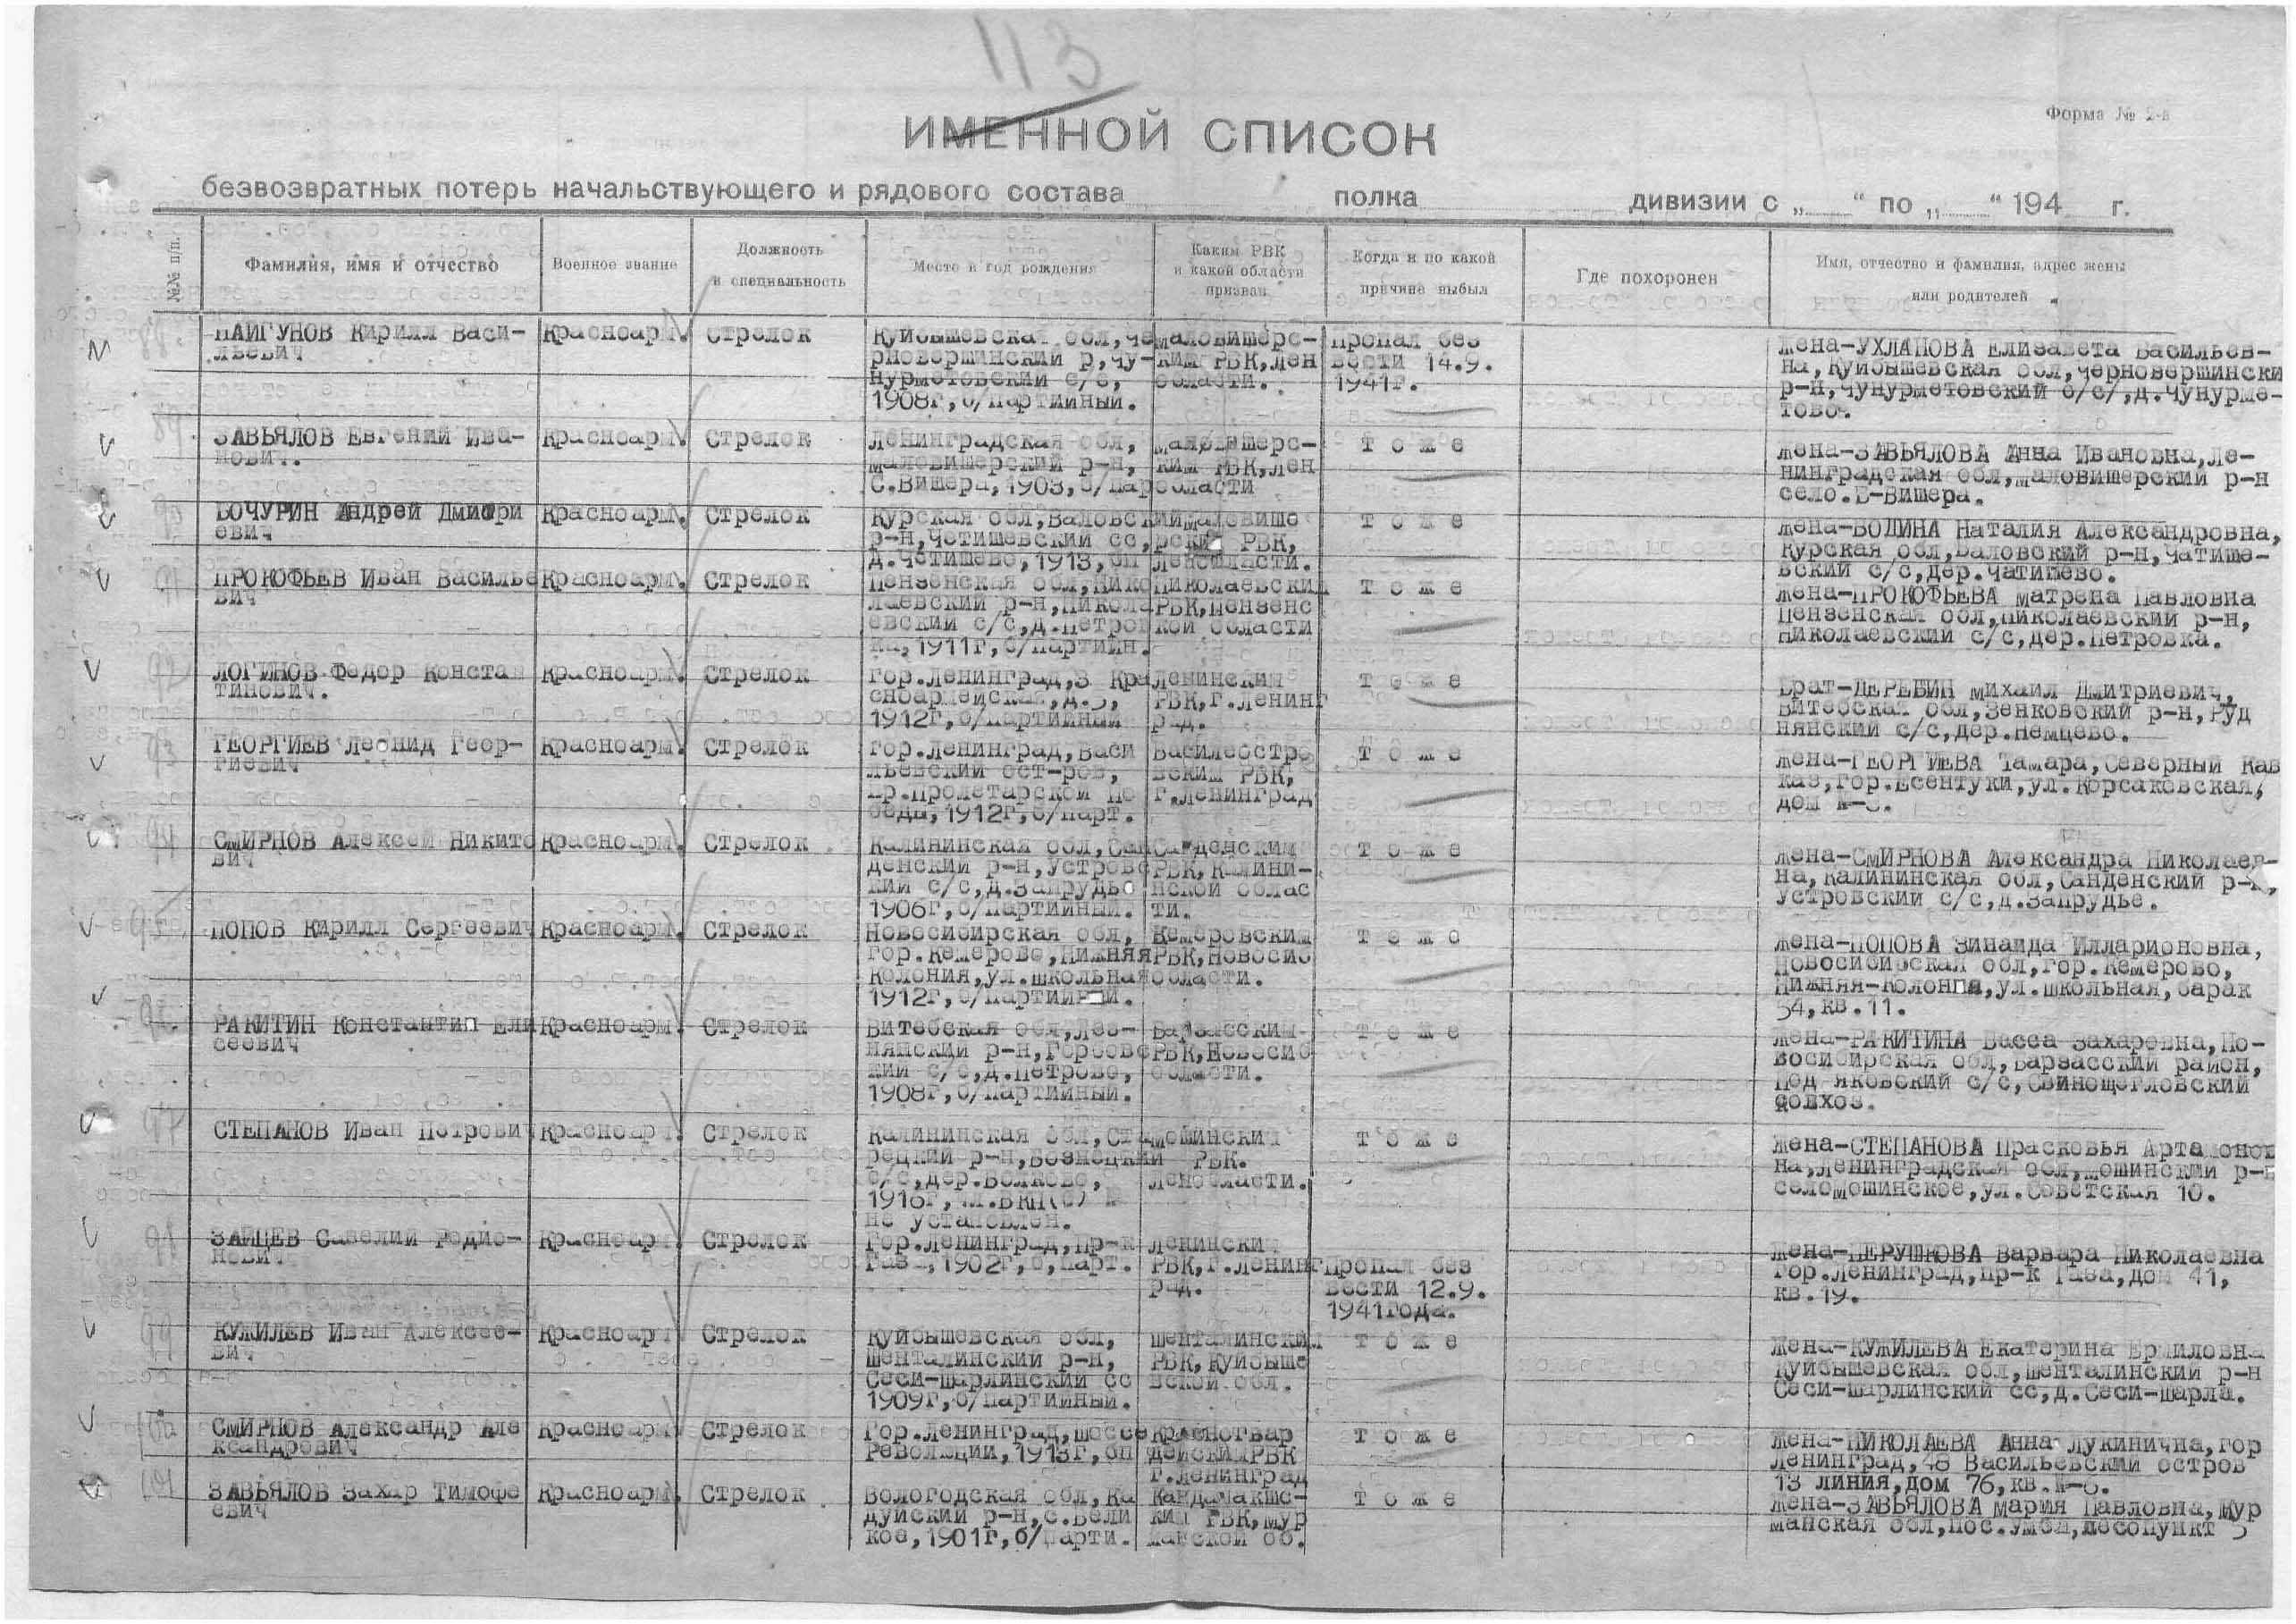 113
Форма № 2-в
ИМЕННОЙ СПИСОК
безвозвратных потерь начальствующего и рядового состава полка дивизии с „ “ по „ “ 194 г.
№№ п/п.
Фамилия, имя и отчество
Военное звание
Должность
и специальность
Место и год рождения
Каким РВК
и какой области
призван
Когда и по какой
причине выбыл
Где похоронен
Имя, отчество и фамилия, адрес жены
или родителей
НАЙГУНОВ Кирилл Васи-
льевич
Красноарм.
Стрелок
Куйбышевская обл,че
рновершинский р,чу-
нурметовский с/с,
1908г,б/партийный.
маловишерс-
ким РВК,лен
области.
Пропал без
вести 14.9.
1941г.
жена-УХЛАНОВА Елизавета Васильев-
на,Куйбышевская обл,черновершински
р-н,чунурметовский с/с/,д.чунурме-
тово.
89
ЗАВЬЯЛОВ Евгений Ива-
нович.
Красноарм.
Стрелок
Ленинградская обл,
маловишерский р-н,
С.Вишера,1903,б/пар
маловишерс-
ким РВК,лен
области
т о ж е
жена-ЗАВЬЯЛОВА Анна Ивановна,ле-
нинградская обл,маловишерский р-н
село.Б-Вишера.
90
БОЧУРИН Андрей Дмитри
евич
Красноарм.
Стрелок
Курская обл,Валовский
р-н,Чотишевский сс,
д.Чотишево,1913,бп
маловише
рским РВК,
ленобласти.
т о ж е
жена-БОДИНА Наталия Александровна,
Курская обл,Валовский р-н,Чатише-
вский с/с,дер.Чатишево.
91
ПРОКОФЬЕВ Иван Василье
вич
Красноарм.
Стрелок
Пензенская обл,Нико
лаевский р-н,Никола
евский с/с,д.Петров
ка,1911г,б/партийн.
Николаевским
РВК,Пензенс
кой области
т о ж е
жена-ПРОКОФЬЕВА Матрена Павловна
Пензенская обл,Николаевский р-н,
Николаевский с/с,дер.Петровка.
92
ЛОГИНОВ Федор Констан
тинович.
Красноарм.
Стрелок
Гор.Ленинград,3 Кра
сноармейская,д.5,
1912г,б/партийный
Ленинским
РВК,г.Ленинг
рад.
т о ж е
Брат-ДЕРЕБИН Михаил Дмитриевич,
Витебская обл,Зенковский р-н,Руд
нянский с/с,дер.Немцево.
93
ГЕОРГИЕВ Леонид Геор-
гиевич
Красноарм.
Стрелок
Гор.Ленинград,Васи
льевский ост-ров,
пр.Пролетарской По
беды,1912г,б/парт.
Василеостро
вским РВК,
г.Ленинград
т о ж е
жена-ГЕОРГИЕВА Тамара,Северный Кав
каз,гор.Есентуки,ул.Корсаковская,
дом
94
СМИРНОВ Алексей Никито
вич
Красноарм.
Стрелок
Калининская обл,Сан
денский р-н,Устровс
кий с/с,д.Запрудье
1906г,б/партийный.
Санденским
РВК,Калини-
нской облас
ти.
т о ж е
жена-СМИРНОВА Александра Николаев-
на,Калининская обл,Санденский р-н,
Устровский с/с,д.Запрудье.
95
ПОПОВ Кирилл Сергеевич
Красноарм.
Стрелок
Новосибирская обл,
гор.Кемерово,Нижняя
Колония,ул.Школьная
1912г,б/партийный.
Кемеровским
РВК,Новосиб
области.
т о ж е
жена-ПОПОВА Зинаида Илларионовна,
Новосибирская обл,гор.Кемерово,
Нижняя-Колония,ул.Школьная,барак
54,кв.11.
96.
РАКИТИН Константин Ели
сеевич
Красноарм.
Стрелок
Витебская обл,Лез-
нянский р-н,Горбовс
кий с/с,д.Петрово,
1908г,б/партийный.
Барзасским
РВК,Новосиб
области.
т о ж е
жена-РАКИТИНА Васса Захаровна,Но-
восибирская обл,Барзасский район,
Под яковский с/с,Свинощегловский
совхоз.
97
СТЕПАНОВ Иван Петрович
Красноарм.
Стрелок
Калининская обл,Ста
рецкий р-н,Вознецкий
с/с,дер.Волково,
1916г,
не установлен.
мошинским
РВК.
ленобласти.
т о ж е
жена-СТЕПАНОВА Прасковья Артамонов
на,ленинградская обл,мошинский р-н
селомошинское,ул.Советская 10.
98
ЗАЙЦЕВ Савелий Родио-
нович
Красноарм.
Стрелок
Гор.Ленинград,пр-к
Газа,1902г,б,парт.
Ленинским
РВК,г.Ленинг
рад.
Пропал без
вести 12.9.
1941года.
жена-ПЕРУШКОВА Варвара Николаевна
гор.Ленинград,пр-к Газа,дом 41,
кв.19.
99
КУЖИЛЕВ Иван Алексее-
вич
Красноарм
Стрелок
Куйбышевская обл,
Шенталинский р-н,
Сеси-Шарлинский сс
1909г,б/партийный.
Шенталинским
РВК,Куйбыше
вской обл.
т о ж е
жена-КУЖИЛЕВА Екатерина Ермиловна
Куйбышевская обл,Шенталинский р-н
Сеси-Шарлинский сс,д.Сеси-Шарла.
100
СМИРНОВ Александр Але
ксандрович
Красноарм
Стрелок
Гор.Ленинград,шоссе
Революции,1913г,бп
Красногвар
дейскимРВК
г.Ленинград
т о ж е
жена-НИКОЛАЕВА Анна Лукинична,гор
Ленинград,48 Васильевский остров
13 линия,дом 76,кв.
101
ЗАВЬЯЛОВ Захар Тимофе
евич
Красноарм.
Стрелок
Вологодская обл,Ка
дуйский р-н,с.Вели
кое,1901г,б/парти.
Кандалакшс-
ким РВК,мур
манской об.
т о ж е
жена-ЗАВЬЯЛОВА Мария Павловна,Мур
манская обл,пос.Умба,лесопункт 5